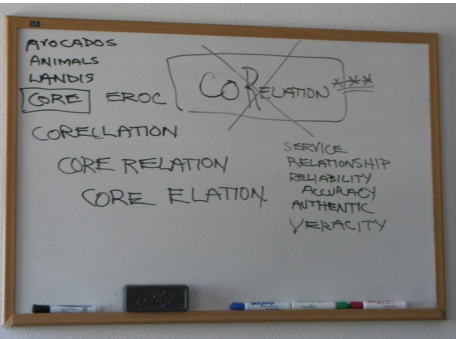 AVOCADOS
ANIMALS
LANDIS
CORE EROC
CORELATION***
CORELLATION
CORE RELATION
CORE ELATION
SERVICE
RELATIONSHIP
RELIABILITY
ACCURACY
AUTHENTIC
VERACITY